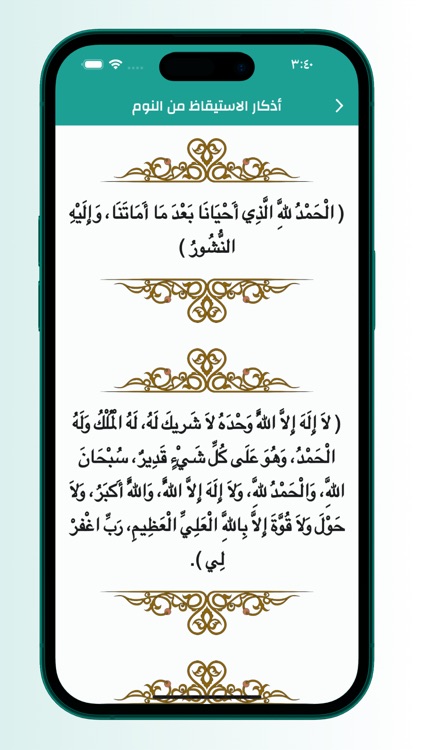 ٣:٤٠
أذكار الاستيقاظ من النوم
( الْحَمْدُ للهِ الَّذِي أَحْيَانَا بَعْدَ مَا أَمَاتَنَا، وَإِلَيْهِ
النُّشُورُ )
( لاَ إِلَهَ إِلاَّ اللهُ وَحْدَهُ لاَ شَرِيكَ لَهُ، لَهُ الْمُلْكُ وَلَهُ
الْحَمْدُ، وَهُوَ عَلَى كُلِّ شَيْءٍ قَدِيرٌ، سُبْحَانَ
اللهِ، وَالْحَمْدُ للهِ، وَلاَ إِلَهَ إِلاَّ اللهُ، وَاللهُ أَكبَرُ، وَلاَ
حَوْلَ وَلاَ قُوَّةَ إِلاَّ بِاللهِ الْعَلِيِّ الْعَظِيمِ، رَبِّ اغْفرْ
لِي ).